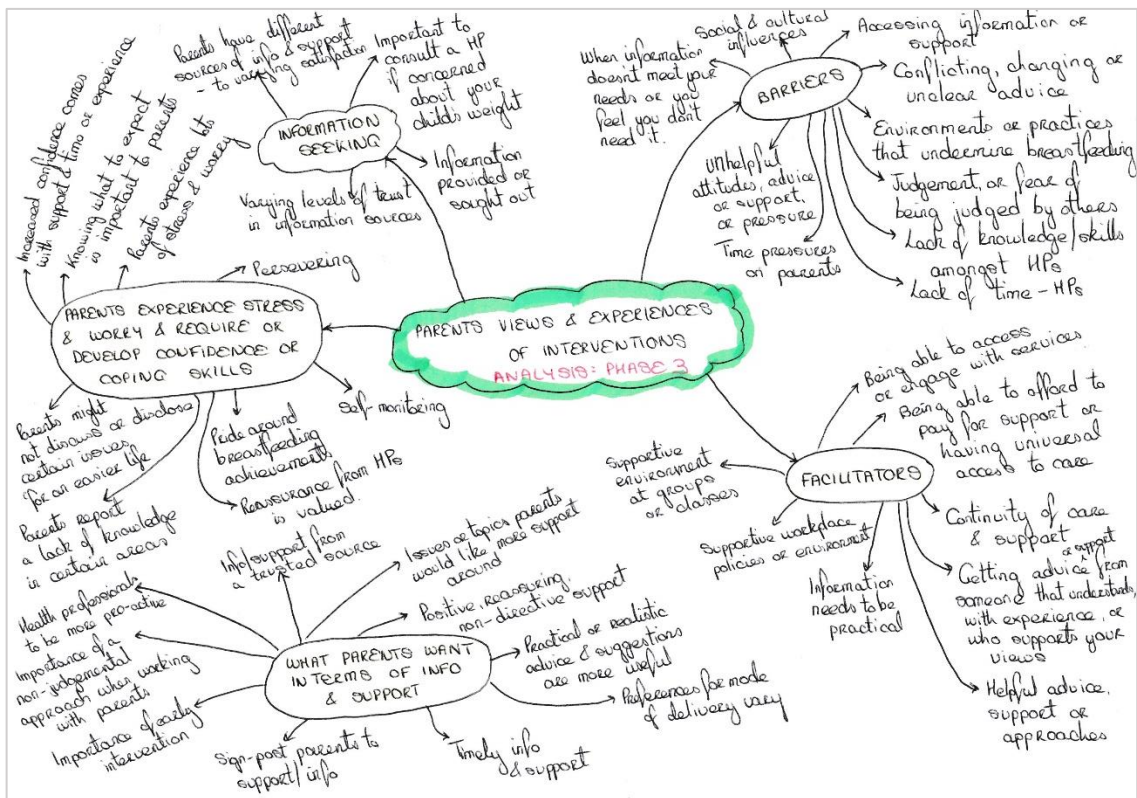 PARENTS VIEWS & EXPERIENCES
OF INTERVENTIONS
ANALYSIS: PHASE 3
INFORMATION
SEEKING
Parents have different
sources of info & support
- to varying satisfaction
Important to
consult a HP
if concerned
about your
child's weight
Information
provided or
sought out
Varying levels of trust
in information sources
BARRIERS
Social & cultural
influences
When information
doesn't meet your
needs or you
feel you don't
need it.
Accessing information or
support
Conflicting, changing or
unclear advice
Environments or practices
that undermine breastfeeding
Judgement, or fear of
being judged by others
Lack of knowledge/skills
amongst HPs
Lack of time - HPs
Unhelpful
attitudes, advice
or support,
or pressure
Time pressures
on parents
PARENTS EXPERIENCE STRESS
& WORRY & REQUIRE OR
DEVELOP CONFIDENCE OR
COPING SKILLS
Increased confidence comes
with support & time or experience
Knowing what to expect
is important to parents
Parents experience lots
of stress & worry
Persevering
Self-monitoring
Pride around
breastfeeding
achievements
Reassurance from HPs
is valued.
Parents might
not discuss or disclose
certain issues
for an easier life
Parents report
a lack of knowledge
in certain areas
FACILITATORS
Being able to access
or engage with services
Being able to afford to
pay for support or
having universal
access to care
Continuity of care
& support
Getting advice or support from
someone that understands,
with experience, or
who supports your
views
Helpful advice,
support or
approaches
Information
needs to be
practical
Supportive workplace
policies or environment
Supportive
environment
at groups
or classes
WHAT PARENTS WANT
IN TERMS OF INFO
& SUPPORT
Info/support from
a trusted source
Issues or topics parents
would like more support
around
Positive, reassuring,
non-directive support
Practical or realistic
advice & suggestions
are more useful
Preferences for mode
of delivery vary
Timely info
& support
Sign-post parents to
support/info
Importance of early
intervention
Importance of a
non-judgemental
approach when working
with parents
Health professionals
to be more pro-active